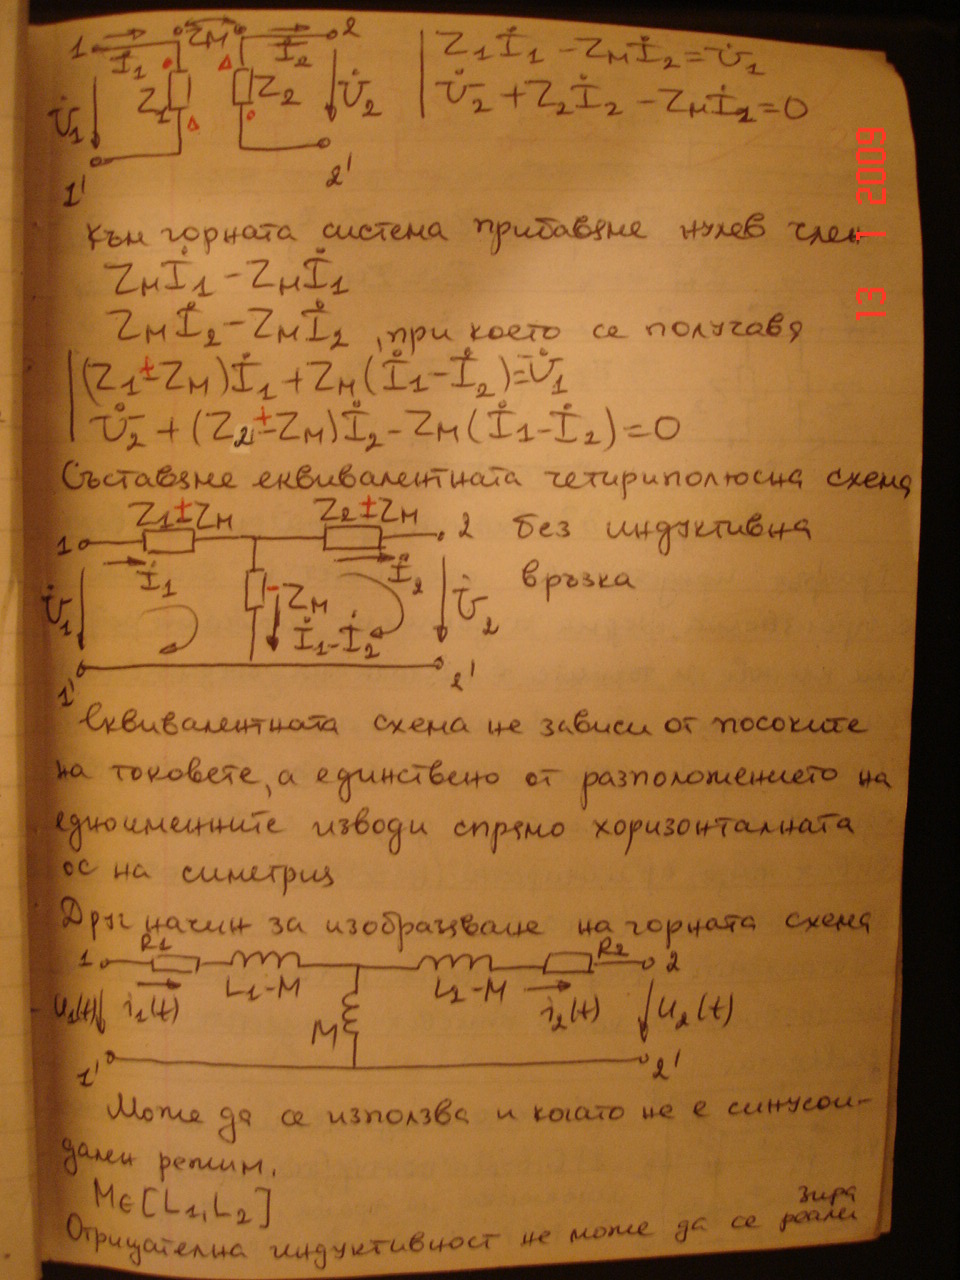 1 İ1 ZM İ2 2
U̇1 Z1 Z2 U̇2
1' 2'
Z1İ1 - ZMİ2 = U̇1
U̇2 + Z2İ2 - ZMİ2 = 0
Към горната система прибавяме нулев член
ZMİ1 - ZMİ1
ZMİ2 - ZMİ2, при което се получавя
(Z1 ± ZM)İ1 + ZM(İ1 - İ2) = U̇1
U̇2 + (Z2 ± ZM)İ2 - ZM(İ1 - İ2) = 0
Съставяме еквивалентната четириполюсна схема
Z1±ZM Z2±ZM
1 2 без индуктивна
İ1 İ2 връзка
U̇1 - ZM U̇2
İ1-İ2
1' 2'
Еквивалентната схема не зависи от посоките
на токовете, а единствено от разположението на
едноименните изводи спрямо хоризонталната
ос на симетрия
Друг начин за изобразяване на горната схема
1 R1 L1-M L2-M R2 2
u1(t) i1(t) M i2(t) u2(t)
1' 2'
Може да се използва и когато не е синусои-
дален режим.
M∈[L1, L2]
Отрицателна индуктивност не може да се реали
зира
13 1 2009